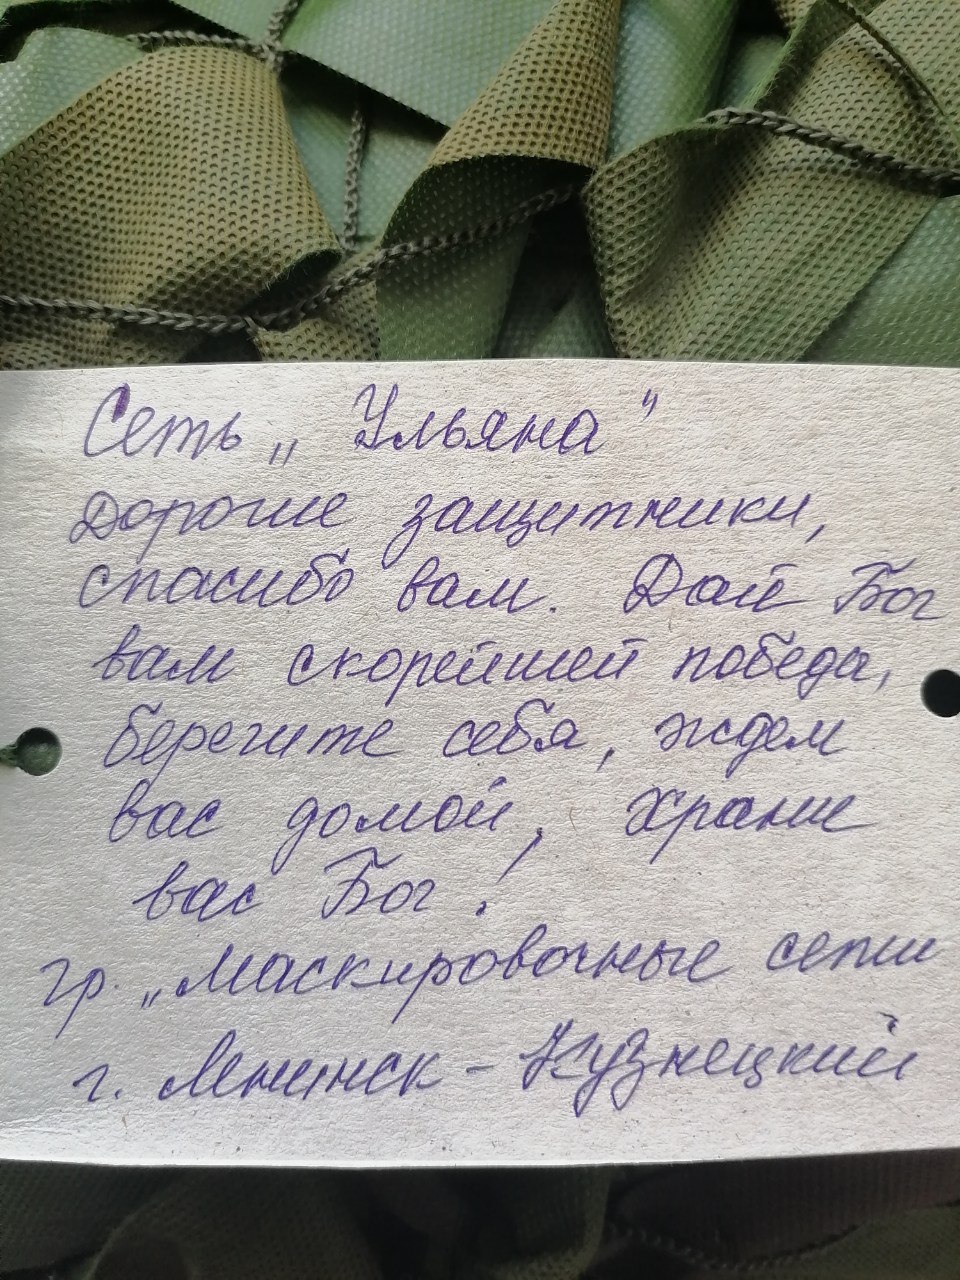 Сеть „Ульяна"
Дорогие защитники,
спасибо вам. Дай Бог
вам скорейшей победы,
берегите себя, ждем
вас домой, храни
вас Бог!
гр. „Маскировочные сети
г. Ленинск-Кузнецкий